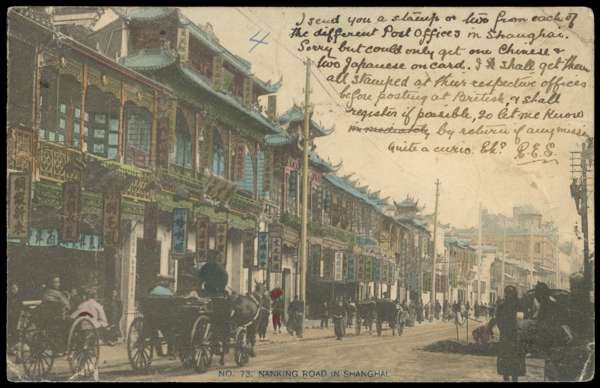 I send you a stamp or two from each of
the different Post Offices in Shanghai.
Sorry but could only get one Chinese &
two Japanese on card. I shall get them
all stamped at their respective offices
before posting at British, & shall
register if possible, so let me know
immediately by return if any miss
Quite a curio. Eh? R.E.S.
4
NO. 73. NANKING ROAD IN SHANGHAI.